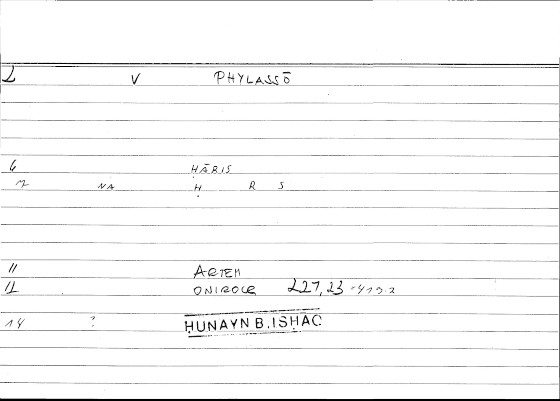 2 V PHYLASSŌ
6 ḤĀRIS
7 NA Ḥ R S
11 ARTEM
12 ONIROCR 227,23 - 419.2
14 ? ḤUNAYN B. ISHAC